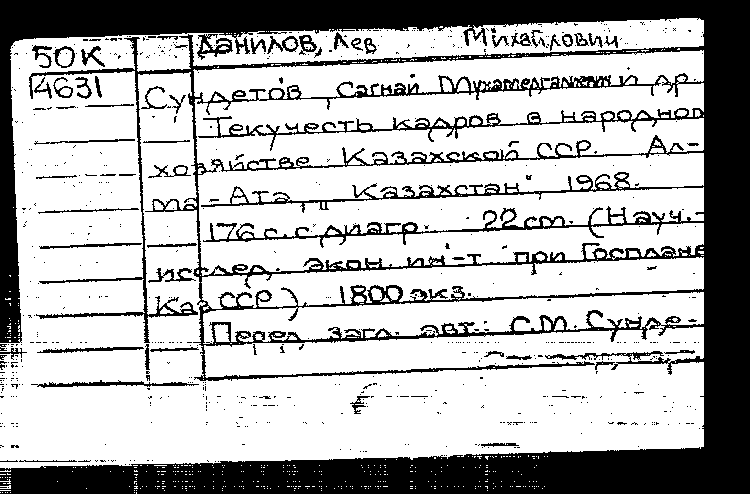 50К Данилов, Лев Михайлович
4631 Сундетов, Сагнай Мухаметгалиевич и др.
Текучесть кадров в народном
хозяйстве Казахской ССР. Ал-
ма-Ата, „Казахстан", 1968.
176 с. с диагр. 22 cm. (Науч.-
исслед. экон. ин-т при Госплане
КазССР). 1800 экз.
Перед загл. авт.: С.М. Сунде-